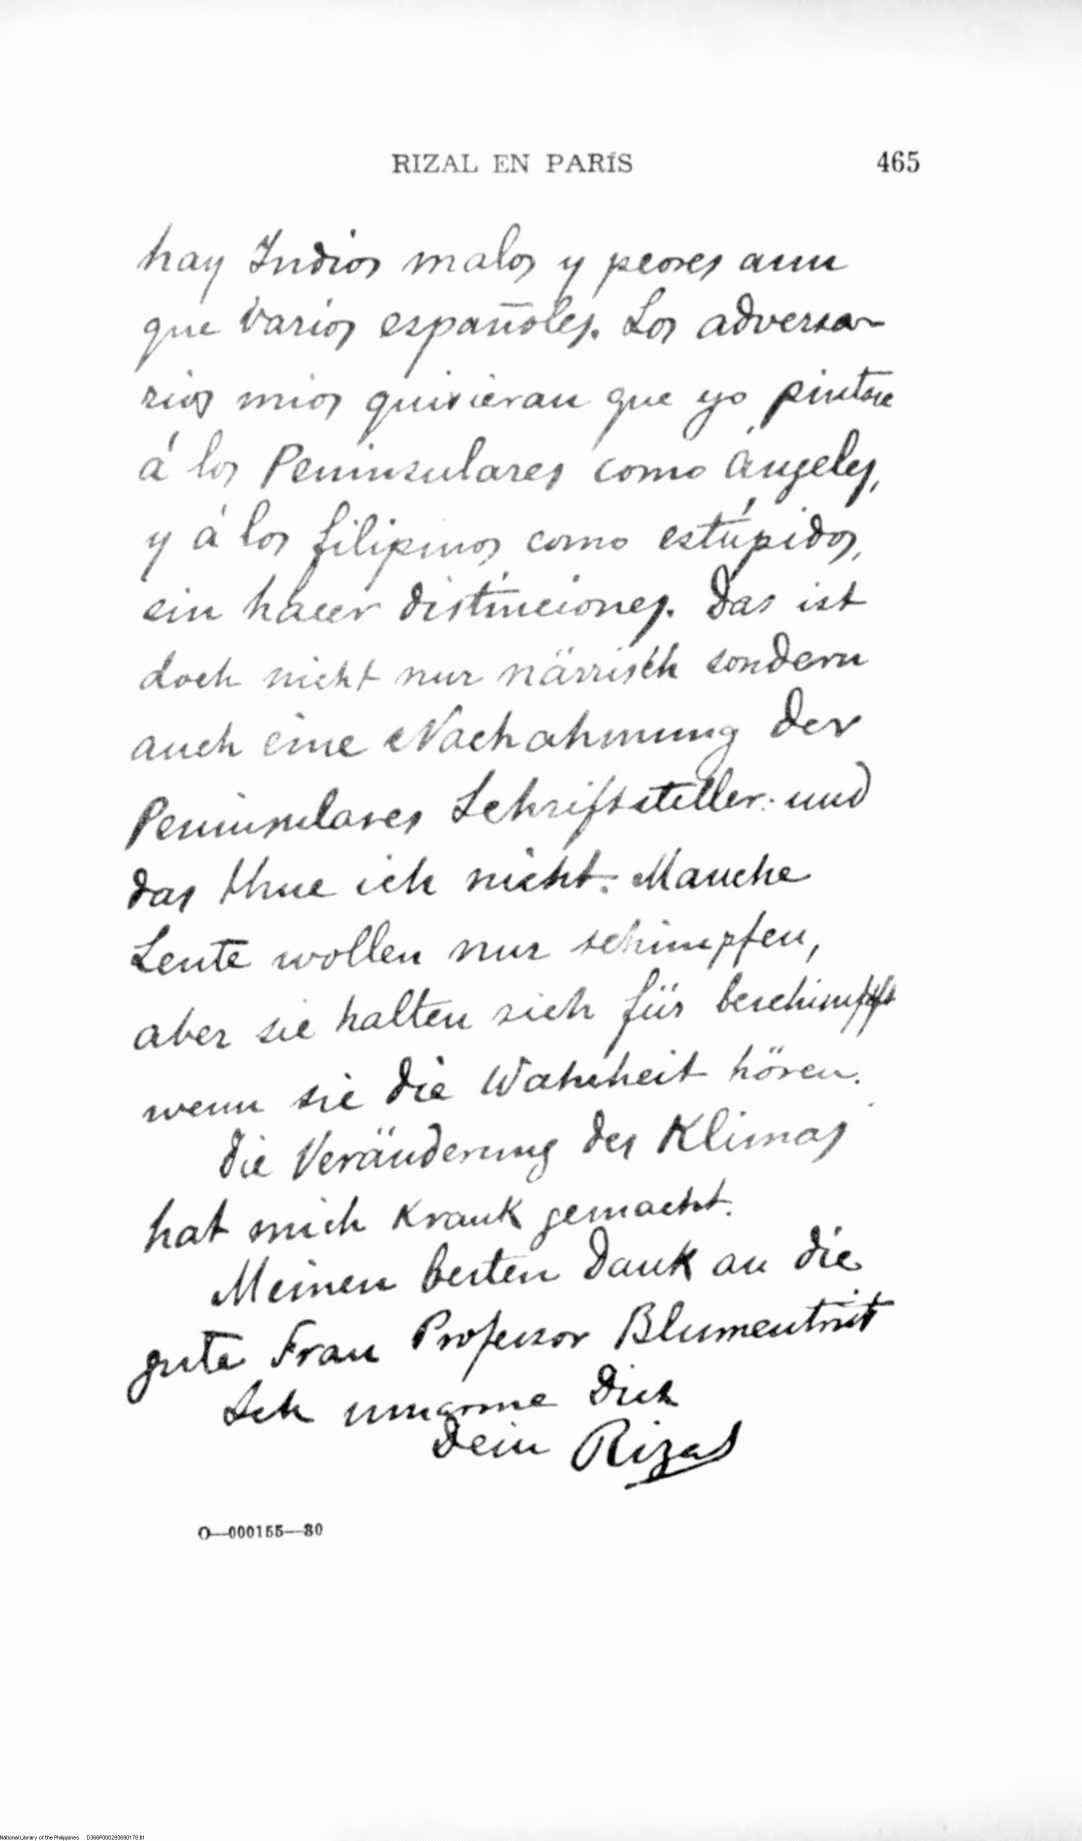 RIZAL EN PARÍS 465
hay Indios malos y peores aun
que varios españoles. Los adversa-
rios mios quisieran que yo pintase
á los Peninsulares como Ángeles,
y á los filipinos como estúpidos,
sin hacer distinciones. Das ist
doch nicht nur närrisch sondern
auch eine Nachahmung der
Peninsulares Schriftsteller: und
das thue ich nicht. Manche
Leute wollen nur schimpfen,
aber sie halten sich für beschimpft
wenn sie die Wahrheit hören.
Die Veränderung des Klimas
hat mich krank gemacht.
Meinen besten Dank an die
gute Frau Professor Blumentritt
Ich umarme Dich
Dein Rizal
O—000155—30
National Library of the Philippines